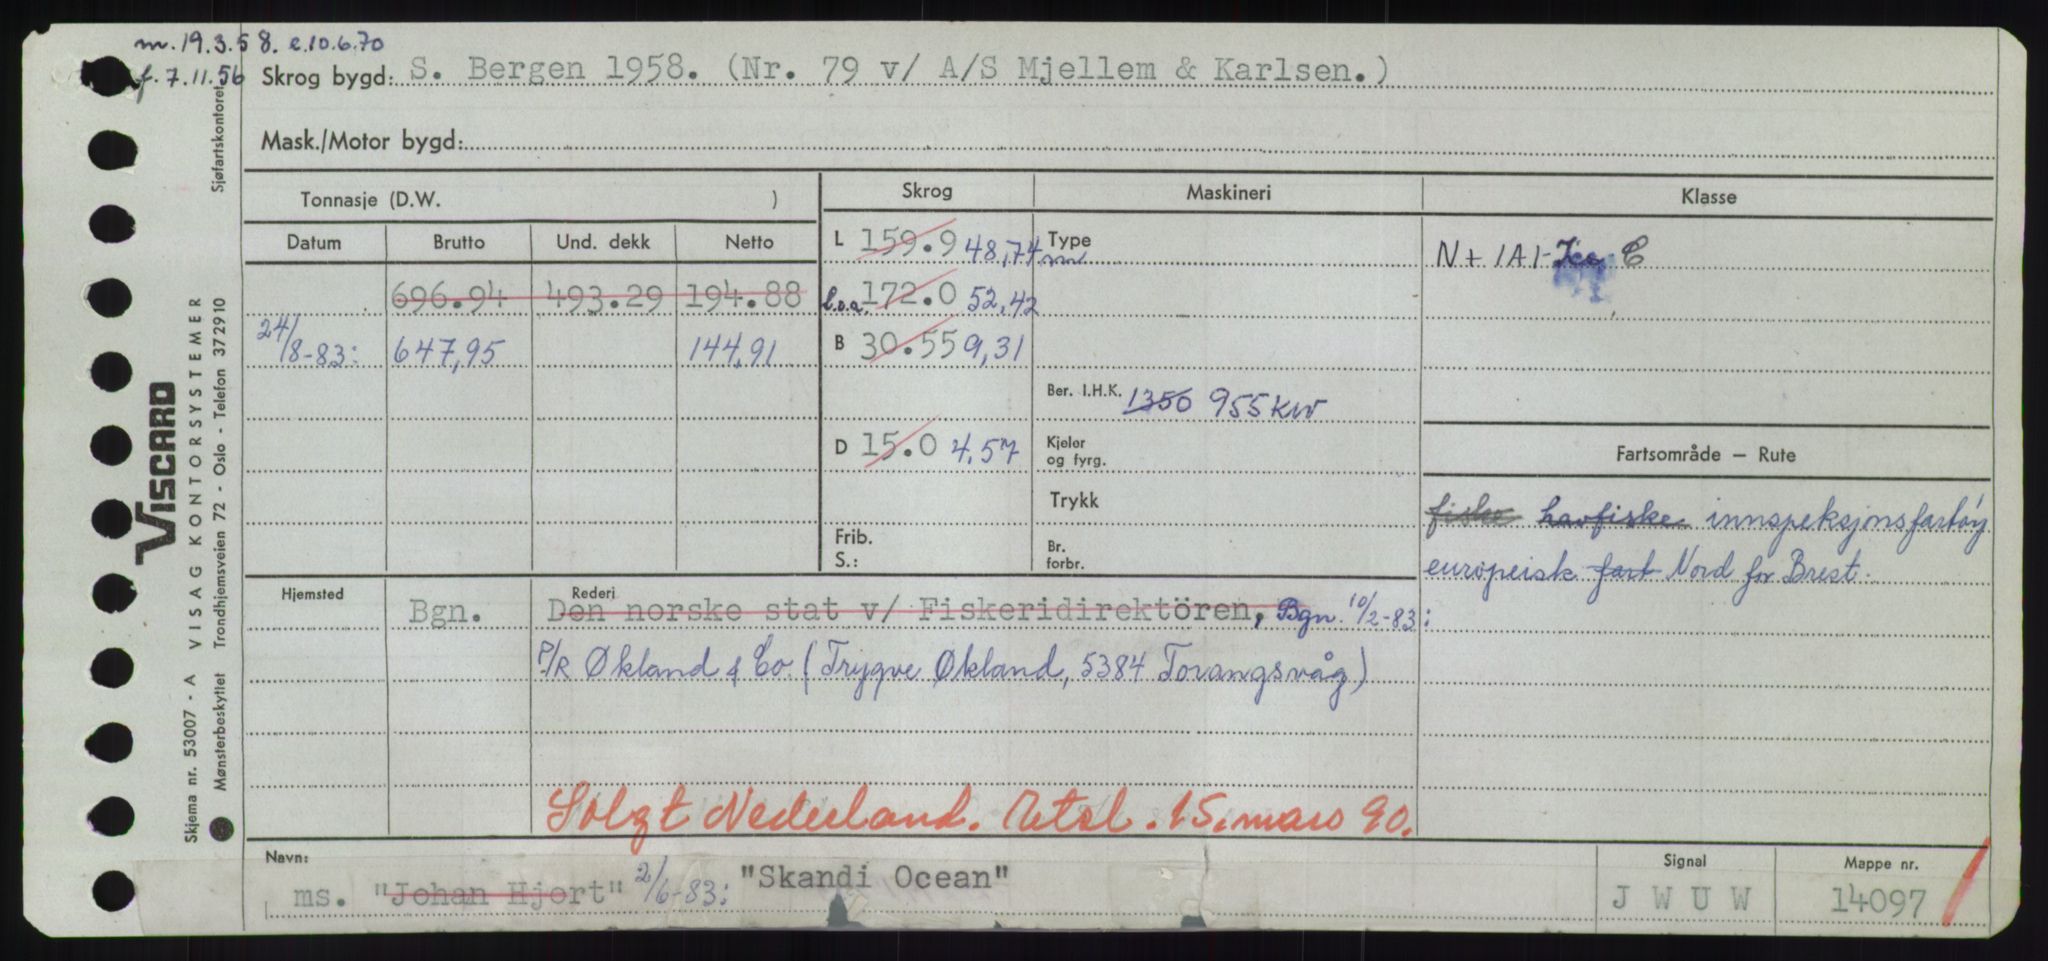 m. 19.3.58. e.10.6.70
f. 7.11.56 Skrog bygd: S. Bergen 1958. (Nr. 79 v/ A/S Mjellem & Karlsen.)
Mask./Motor bygd:
Tonnasje (D.W. )
Skrog
Maskineri
Klasse
Datum Brutto Und. dekk Netto
696.94 493.29 194.88
24/8-83: 647,95 144,91
L 159.9 48,74 m
l.o.a. 172.0 52,42
B 30.55 9,31
D 15.0 4,57
Frib.
S.:
Type
Ber. I.H.K. 1350 955 kW
Kjeler
og fyrg.
Trykk
Br.
forbr.
N + 1A1 - Ice C
Fartsområde – Rute
fiske havfiske innspeksjonsfartøy
europeisk fart Nord for Brest.
Hjemsted Rederi
Bgn. Den norske stat v/ Fiskeridirektören, Bgn. 10/2-83:
P/R Økland & Co. (Trygve Økland, 5384 Torangsvåg)
Solgt Nederland. Utsl. 15. mars 90.
Navn: Signal Mappe nr.
ms. "Johan Hjort" 2/6-83: "Skandi Ocean" J W U W 14097
Sjøfartskontoret
VISCARD
VISAG KONTORSYSTEMER
Trondhjemsveien 72 - Oslo - Telefon 372910
Skjema nr. 53007 - A
Mønsterbeskyttet